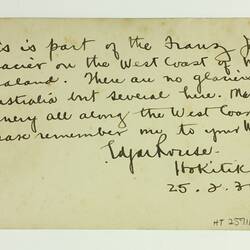 is is part of the Franz J
acier on the West Coast of N
ealand. There are no glacier
ustralia but several here. Ma
nery all along the West Coas
ease remember me to your M
Edgar House.
Hokitik
25. 2. 3
HT 2571